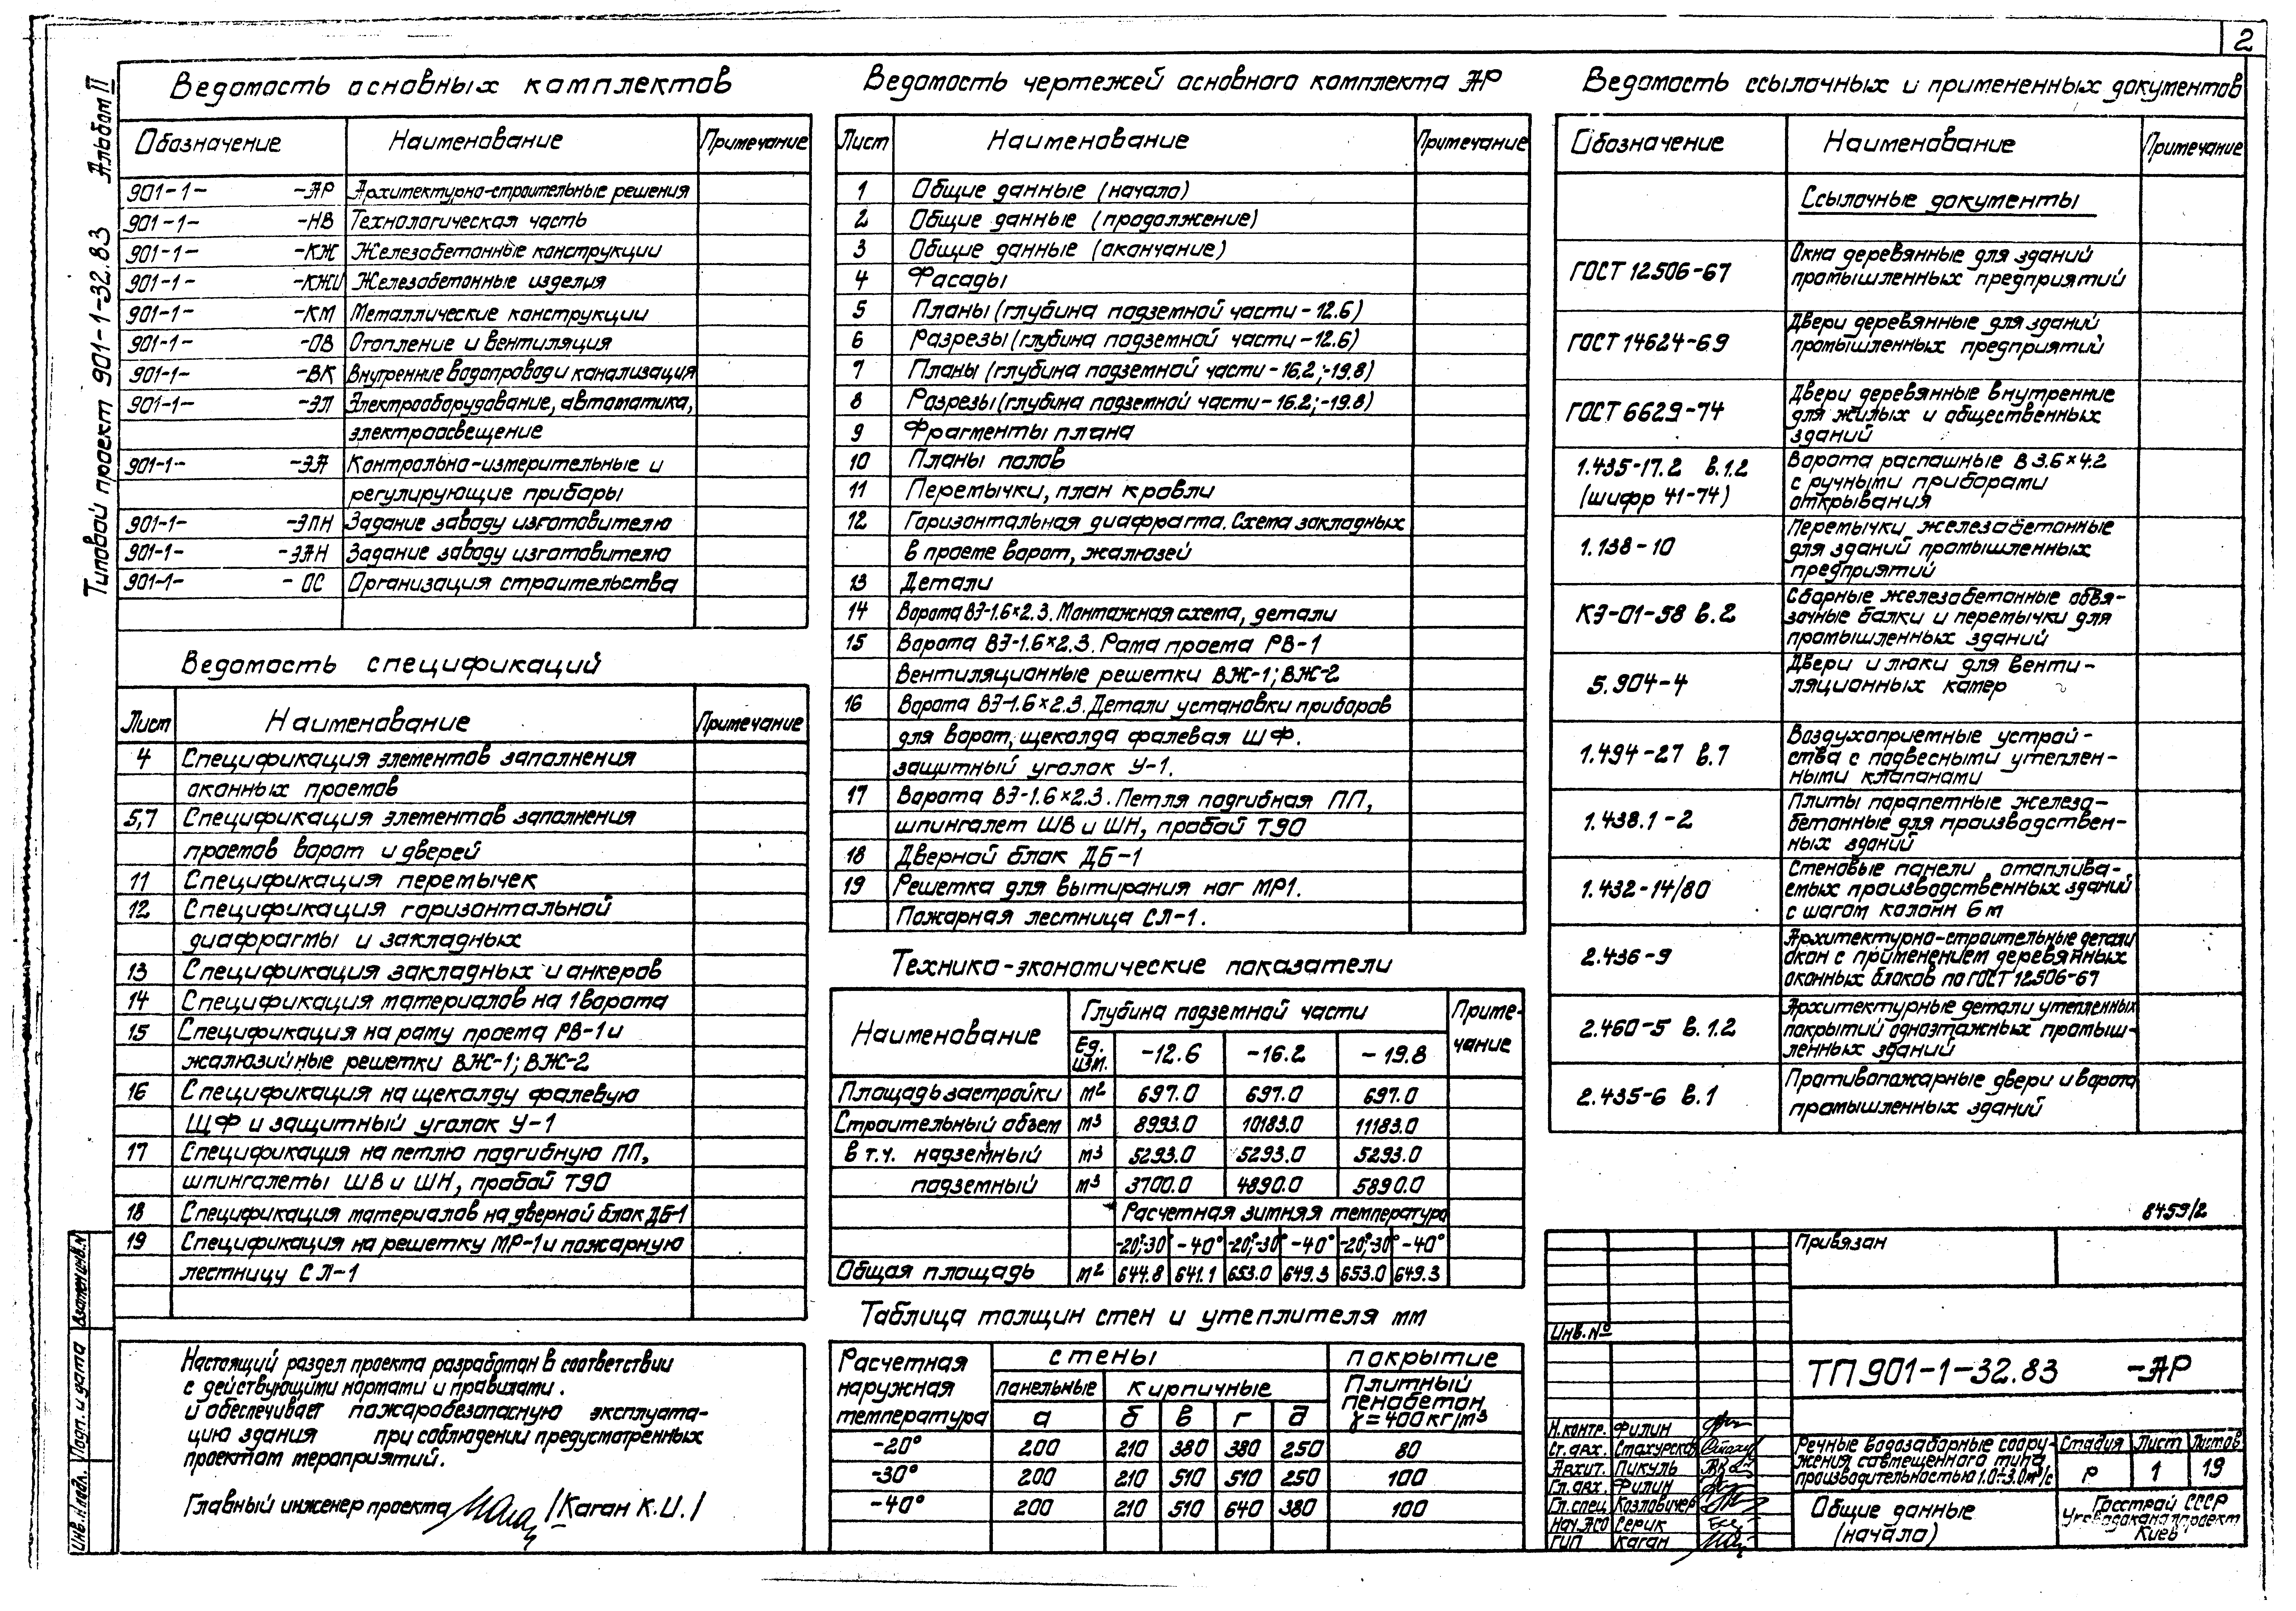 2
Типовой проект 901-1-32.83 Альбом II
Ведомость основных комплектов
Обозначение Наименование Примечание
901-1- -АР Архитектурно-строительные решения
901-1- -НВ Технологическая часть
901-1- -КЖ Железобетонные конструкции
901-1- -КЖИ Железобетонные изделия
901-1- -КМ Металлические конструкции
901-1- -ОВ Отопление и вентиляция
901-1- -ВК Внутренние водопровод и канализация
901-1- -ЭЛ Электрооборудование, автоматика,
электроосвещение
901-1- -ЭА Контрольно-измерительные и
регулирующие приборы
901-1- -ЭЛН Задание заводу изготовителю
901-1- -ЭАН Задание заводу изготовителю
901-1- - ОС Организация строительства
Ведомость спецификаций
Лист Наименование Примечание
4 Спецификация элементов заполнения
оконных проемов
5,7 Спецификация элементов заполнения
проемов ворот и дверей
11 Спецификация перемычек
12 Спецификация горизонтальной
диафрагмы и закладных
13 Спецификация закладных и анкеров
14 Спецификация материалов на 1 ворота
15 Спецификация на раму проема РВ-1 и
жалюзийные решетки ВЖ-1; ВЖ-2
16 Спецификация на щеколду фалевую
ЩФ и защитный уголок У-1
17 Спецификация на петлю подгибную ПП,
шпингалеты ШВ и ШН, пробой Т90
18 Спецификация материалов на дверной блок ДБ-1
19 Спецификация на решетку МР-1 и пожарную
лестницу СЛ-1
Настоящий раздел проекта разработан в соответствии
с действующими нормами и правилами.
и обеспечивает пожаробезопасную эксплуата-
цию здания при соблюдении предусмотренных
проектом мероприятий.
Главный инженер проекта /Каган К.И./
Ведомость чертежей основного комплекта АР
Лист Наименование Примечание
1 Общие данные (начало)
2 Общие данные (продолжение)
3 Общие данные (окончание)
4 Фасады
5 Планы (глубина подземной части -12.6)
6 Разрезы (глубина подземной части -12.6)
7 Планы (глубина подземной части -16.2; -19.8)
8 Разрезы (глубина подземной части -16.2; -19.8)
9 Фрагменты плана
10 Планы полов
11 Перемычки, план кровли
12 Горизонтальная диафрагма. Схема закладных
в проеме ворот, жалюзей
13 Детали
14 Ворота ВЭ-1.6×2.3. Монтажная схема, детали
15 Ворота ВЭ-1.6×2.3. Рама проема РВ-1
Вентиляционные решетки ВЖ-1; ВЖ-2
16 Ворота ВЭ-1.6×2.3. Детали установки приборов
для ворот, щеколда фалевая ШФ.
защитный уголок У-1.
17 Ворота ВЭ-1.6×2.3. Петля подгибная ПП,
шпингалет ШВ и ШН, пробой Т90
18 Дверной блок ДБ-1
19 Решетка для вытирания ног МР1.
Пожарная лестница СЛ-1.
Технико-экономические показатели
Наименование Глубина подземной части Приме-
чание
Ед. изм. -12.6 -16.2 -19.8
Площадь застройки м2 697.0 697.0 697.0
Строительный объем м3 8993.0 10183.0 11183.0
в т.ч. надземный м3 5293.0 5293.0 5293.0
подземный м3 3700.0 4890.0 5890.0
Расчетная зимняя температура
-20°;-30° -40° -20°;-30° -40° -20°;-30° -40°
Общая площадь м2 644.8 641.1 653.0 649.3 653.0 649.3
Таблица толщин стен и утеплителя мм
Расчетная наружная температура стены покрытие
панельные кирпичные Плитный пенобетон γ=400кг/м3
а б в г д
-20° 200 210 380 380 250 80
-30° 200 210 510 510 250 100
-40° 200 210 510 640 380 100
Ведомость ссылочных и примененных документов
Обозначение Наименование Примечание
Ссылочные документы
ГОСТ 12506-67 Окна деревянные для зданий
промышленных предприятий
ГОСТ 14624-69 Двери деревянные для зданий
промышленных предприятий
ГОСТ 6629-74 Двери деревянные внутренние
для жилых и общественных
зданий
1.435-17.2 в.1.2 Ворота распашные В 3.6×4.2
(шифр 41-74) с ручными приборами
открывания
1.138-10 Перемычки железобетонные
для зданий промышленных
предприятий
КЭ-01-58 в.2 Сборные железобетонные обвя-
зочные балки и перемычки для
промышленных зданий
5.904-4 Двери и люки для венти-
ляционных камер
1.494-27 в.7 Воздухоприемные устрой-
ства с подвесными утеплен-
ными клапанами
1.438.1-2 Плиты парапетные железо-
бетонные для производствен-
ных зданий
1.432-14/80 Стеновые панели отаплива-
емых производственных зданий
с шагом колонн 6м
2.436-9 Архитектурно-строительные детали
окон с применением деревянных
оконных блоков по ГОСТ 12506-67
2.460-5 в.1.2 Архитектурные детали утепленных
покрытий одноэтажных промыш-
ленных зданий
2.435-6 в.1 Противопожарные двери и ворота
промышленных зданий
8459/2
Привязан
Инв.№
ТП 901-1-32.83 -АР
Н.контр. Филин
Ст.арх. Стахурская
Архит. Пикуль
Гл.арх. Филин
Гл.спец. Козловичер
Нач.АСО Серик
ГИП Каган
Речные водозаборные соору-
жения совмещенного типа
производительностью 1.0÷3.0м3/с
Стадия Лист Листов
Р 1 19
Общие данные
(начало)
Госстрой СССР
Укрводоканалпроект
Киев
Инв.№ подл. Подп. и дата Взамен инв.№